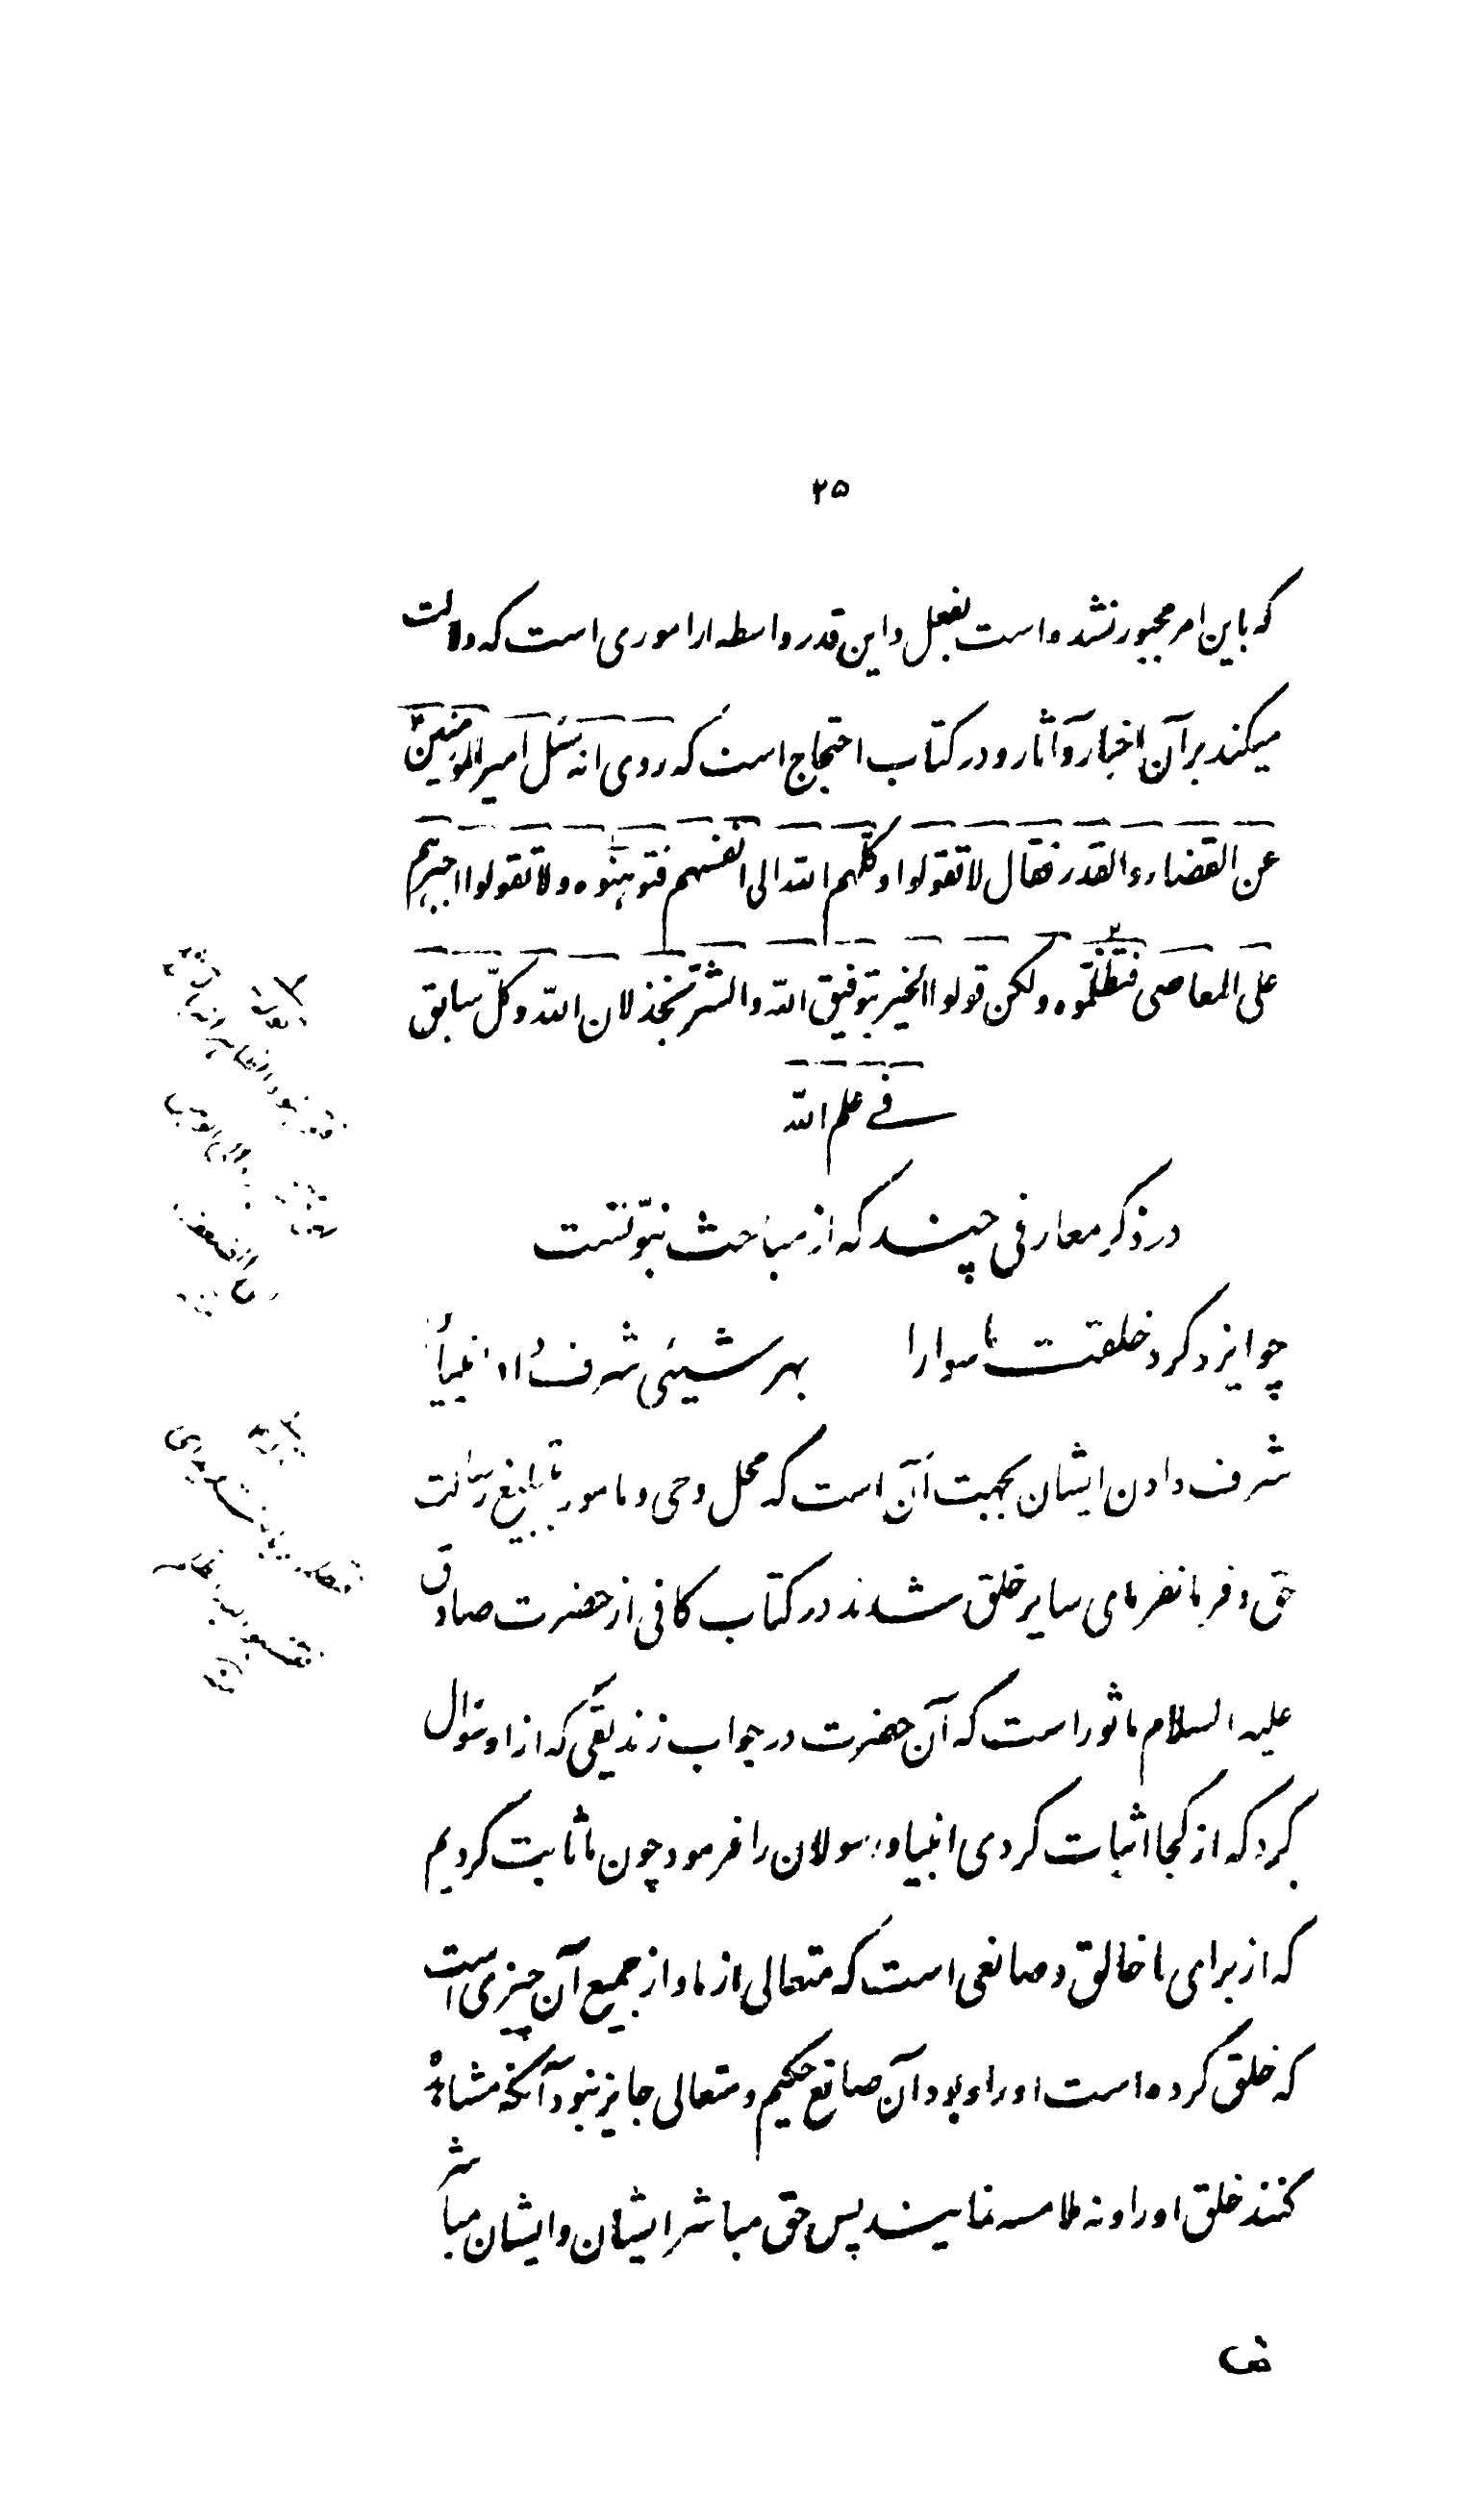 ۲۵
که باین امر مجبور نشده است بفعل و این قدر واسطه از اموری است که دلالت
میکند بر آن اخبار و آثار و در کتاب احتجاج است که روی انه سئل امیر المؤمنین
عن القضاء و القدر فقال لا تقولوا وکلهم الله الی انفسهم فتوهنوه و لا تقولوا اجبرهم
علی المعاصی فتظلموه و لکن قولوا الخیر بتوفیق الله و الشر بخذلان الله و کل سابق
فی علم الله
در ذکر معارفی چند که از مباحث نبوتست
چو ایزد کرد خلقت ماسوا را بهر شیئی شرف داد انبیا را
شرف دادن ایشان بجهت آن است که محل وحی و مامور بتبلیغ رسالت
حق و فرمانفرمای سایر خلق شدند در کتاب کافی از حضرت صادق
علیه السلام ماثور است که آن حضرت در جواب زندیقی که از او سئوال
کرد که از کجا اثبات کردی انبیا و رسولان را فرمود چون ما ثابت کردیم
که از برای ما خالق و صانعی است که متعالی از ما و از جمیع آن چیزی است
که خلق کرده است او را و بود آن صانع حکیم و متعالی جایز نبود آنکه مشاهده
کنند خلق او را و نه ملامسه نمایند پس حق مباشر ایشان و ایشان مباشر